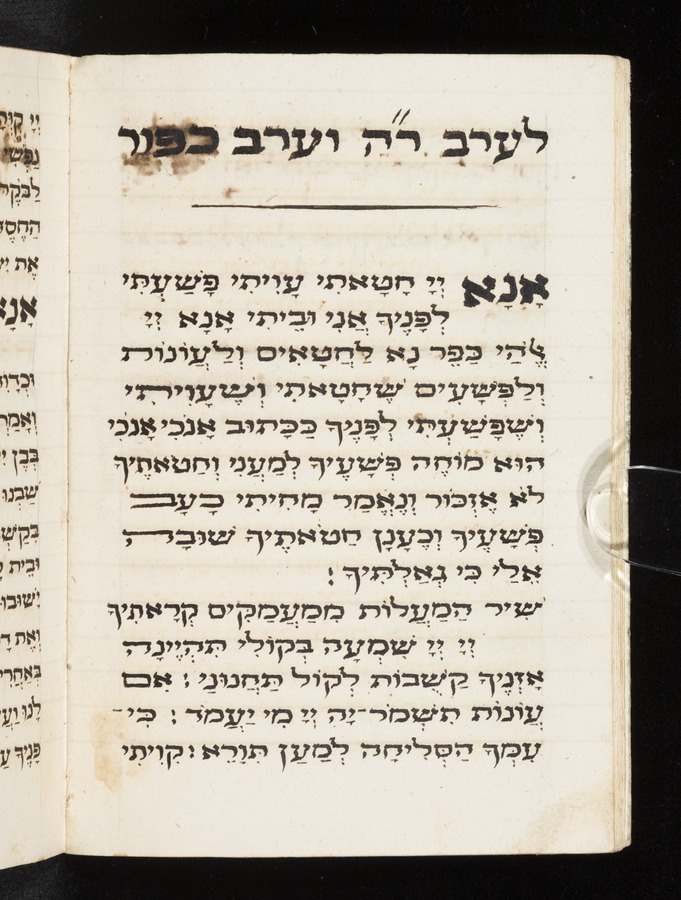 לערב ר״ה וערב כפור
אָנָא יְיָ חָטָאתִי עָוִיתִי פָּשַׁעְתִּי
לְפָנֶיךָ אֲנִי וּבֵיתִי אָנָא יְיָ
אֱלֹהַי כַּפֶּר נָא לַחֲטָאִים וְלַעֲוֹנוֹת
וְלַפְּשָׁעִים שֶׁחָטָאתִי וְשֶׁעָוִיתִי
וְשֶׁפָּשַׁעְתִּי לְפָנֶיךָ כַּכָּתוּב אָנֹכִי אָנֹכִי
הוּא מוֹחֶה פְּשָׁעֶיךָ לְמַעֲנִי וְחַטֹּאתֶיךָ
לֹא אֶזְכּוֹר וְנֶאֱמַר מָחִיתִי כָעָב
פְּשָׁעֶיךָ וְכֶעָנָן חַטֹּאתֶיךָ שׁוּבָה
אֵלַי כִּי גְאַלְתִּיךָ׃
שִׁיר הַמַּעֲלוֹת מִמַּעֲמַקִּים קְרָאתִיךָ
יְיָ יְיָ שִׁמְעָה בְקוֹלִי תִּהְיֶינָה
אָזְנֶיךָ קַשֻּׁבוֹת לְקוֹל תַּחֲנוּנָי׃ אִם
עֲוֹנוֹת תִּשְׁמָר־יָהּ יְיָ מִי יַעֲמֹד׃ כִּי־
עִמְּךָ הַסְּלִיחָה לְמַעַן תִּוָּרֵא׃ קִוִּיתִי